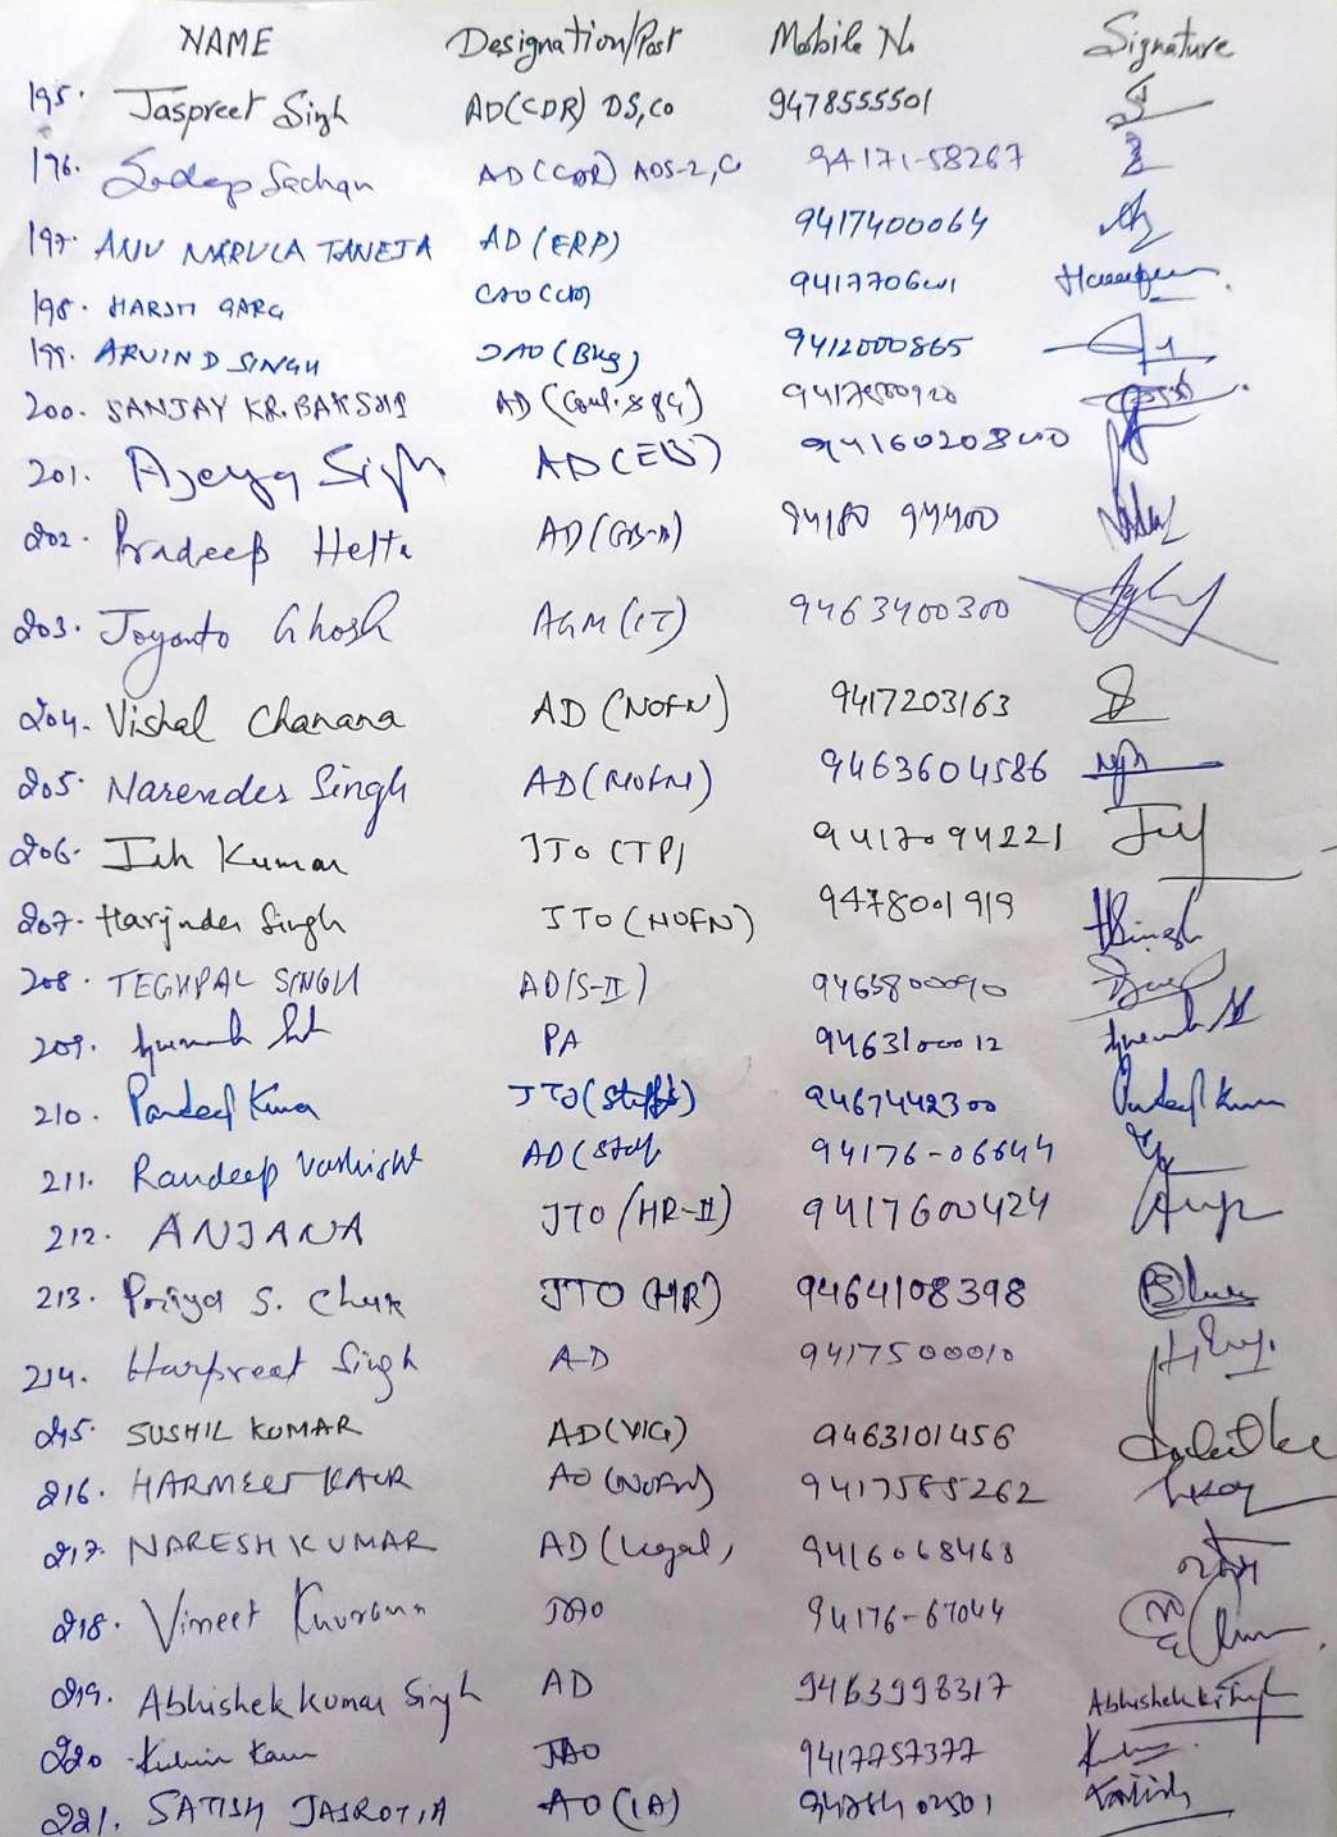 NAME Designation/Post Mobile No Signature
195. Jaspreet Singh AD(CDR) DS,CO 9478555501
196. Sachan AD(CDR) ADS-2,C 94171-58267
197. ANU NARULA TANEJA AD (ERP) 9417400064
198. HARSH GARG
199. ARVIND SINGH JAO (Bkg) 9412000865
200. SANJAY KR. BAKSHI AD
201. Singh AD(EB)
202. Pradeep AD 94180 94400
203. Joyonto Ghosh AGM(IT) 9463400300
204. Vishal Chanana AD (NOFN) 9417203163
205. Narender Singh AD(NOFN) 9463604586
206. Ish Kumar JTO (TP) 9417094221
207. Harjinder Singh JTO (NOFN) 9478001919 HSingh
208. TEGHPAL SINGH AD(S-II) 9465800090
209. PA 9463100012
210. Pardeep Kumar JTO 9467442300 Pardeep Kumar
211. Randeep Vashisht AD(Staff 94176-06644
212. ANJANA JTO (HR-II) 9417600424
213. Priya S. JTO (HR) 9464108398
214. Harpreet Singh AD 9417500010
215. SUSHIL KUMAR AD(VIG) 9463101456
216. HARMEET KAUR AO (NOFN) 9417585262
217. NARESH KUMAR AD (Legal) 9416068468
218. Vineet Khurana JAO 94176-67044
219. Abhishek Kumar Singh AD 9463998317 Abhishek Kr Singh
220. Kaur JAO 9417757377
221. SATISH JASROTIA AO (IA) Satish